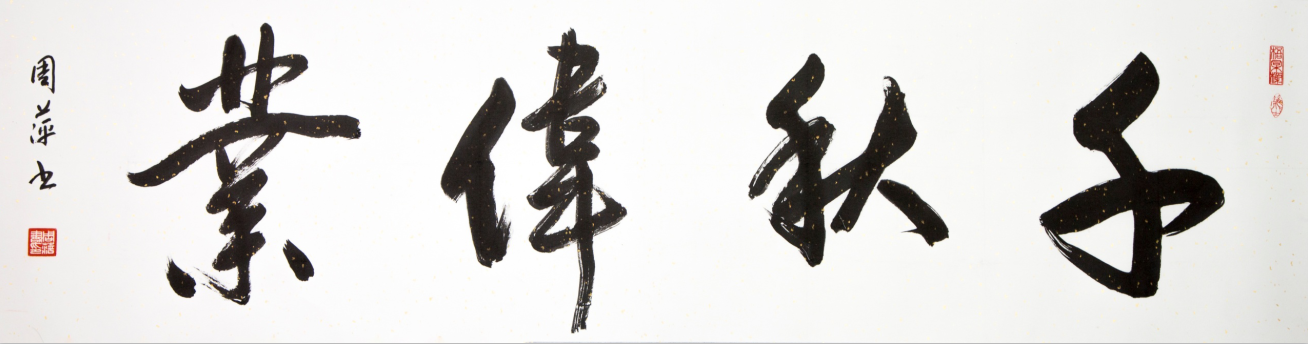 千秋偉業
周萍书